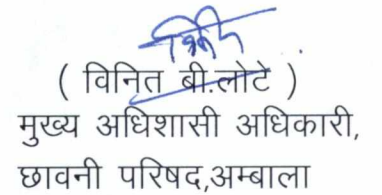 ( विनित बी.लोटे )
मुख्य अधिशासी अधिकारी,
छावनी परिषद,अम्बाला